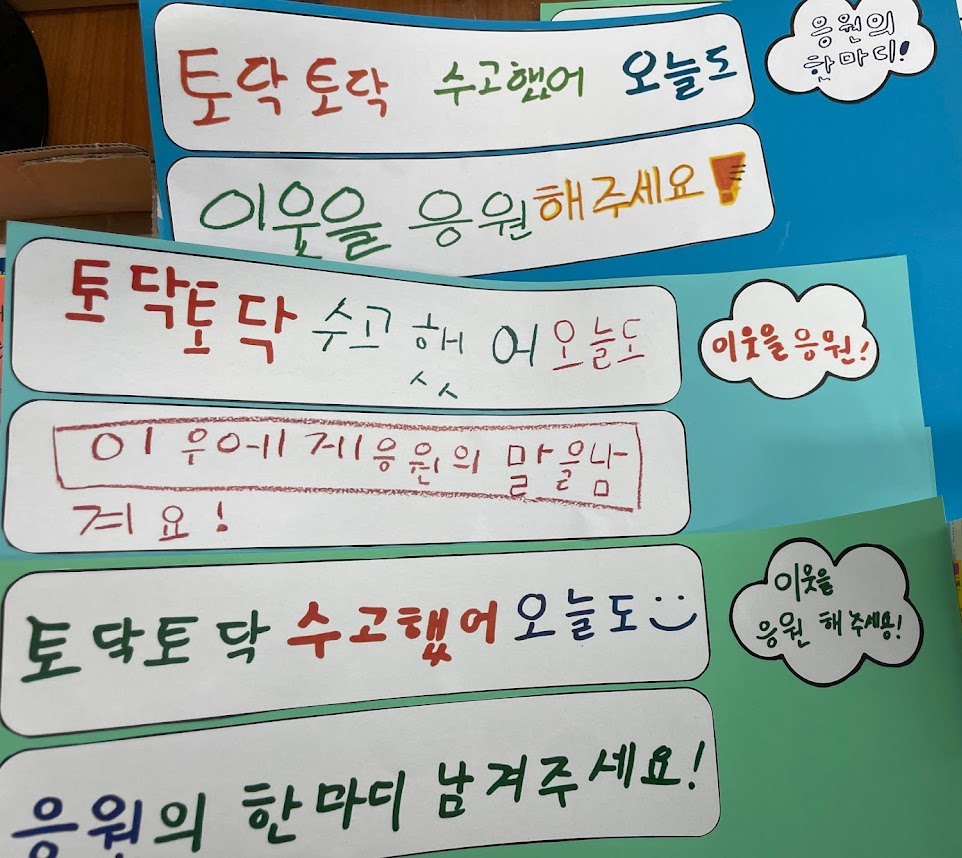 토닥토닥 수고했어 오늘도
응원의
한마디!
이웃을 응원해주세요!
토닥토닥 수고했어오늘도
이웃을응원!
이우에게응원의 말을남
겨요!
토닥토닥 수고했어 오늘도
이웃을
응원 해주세용!
응원의 한마디 남겨주세요!